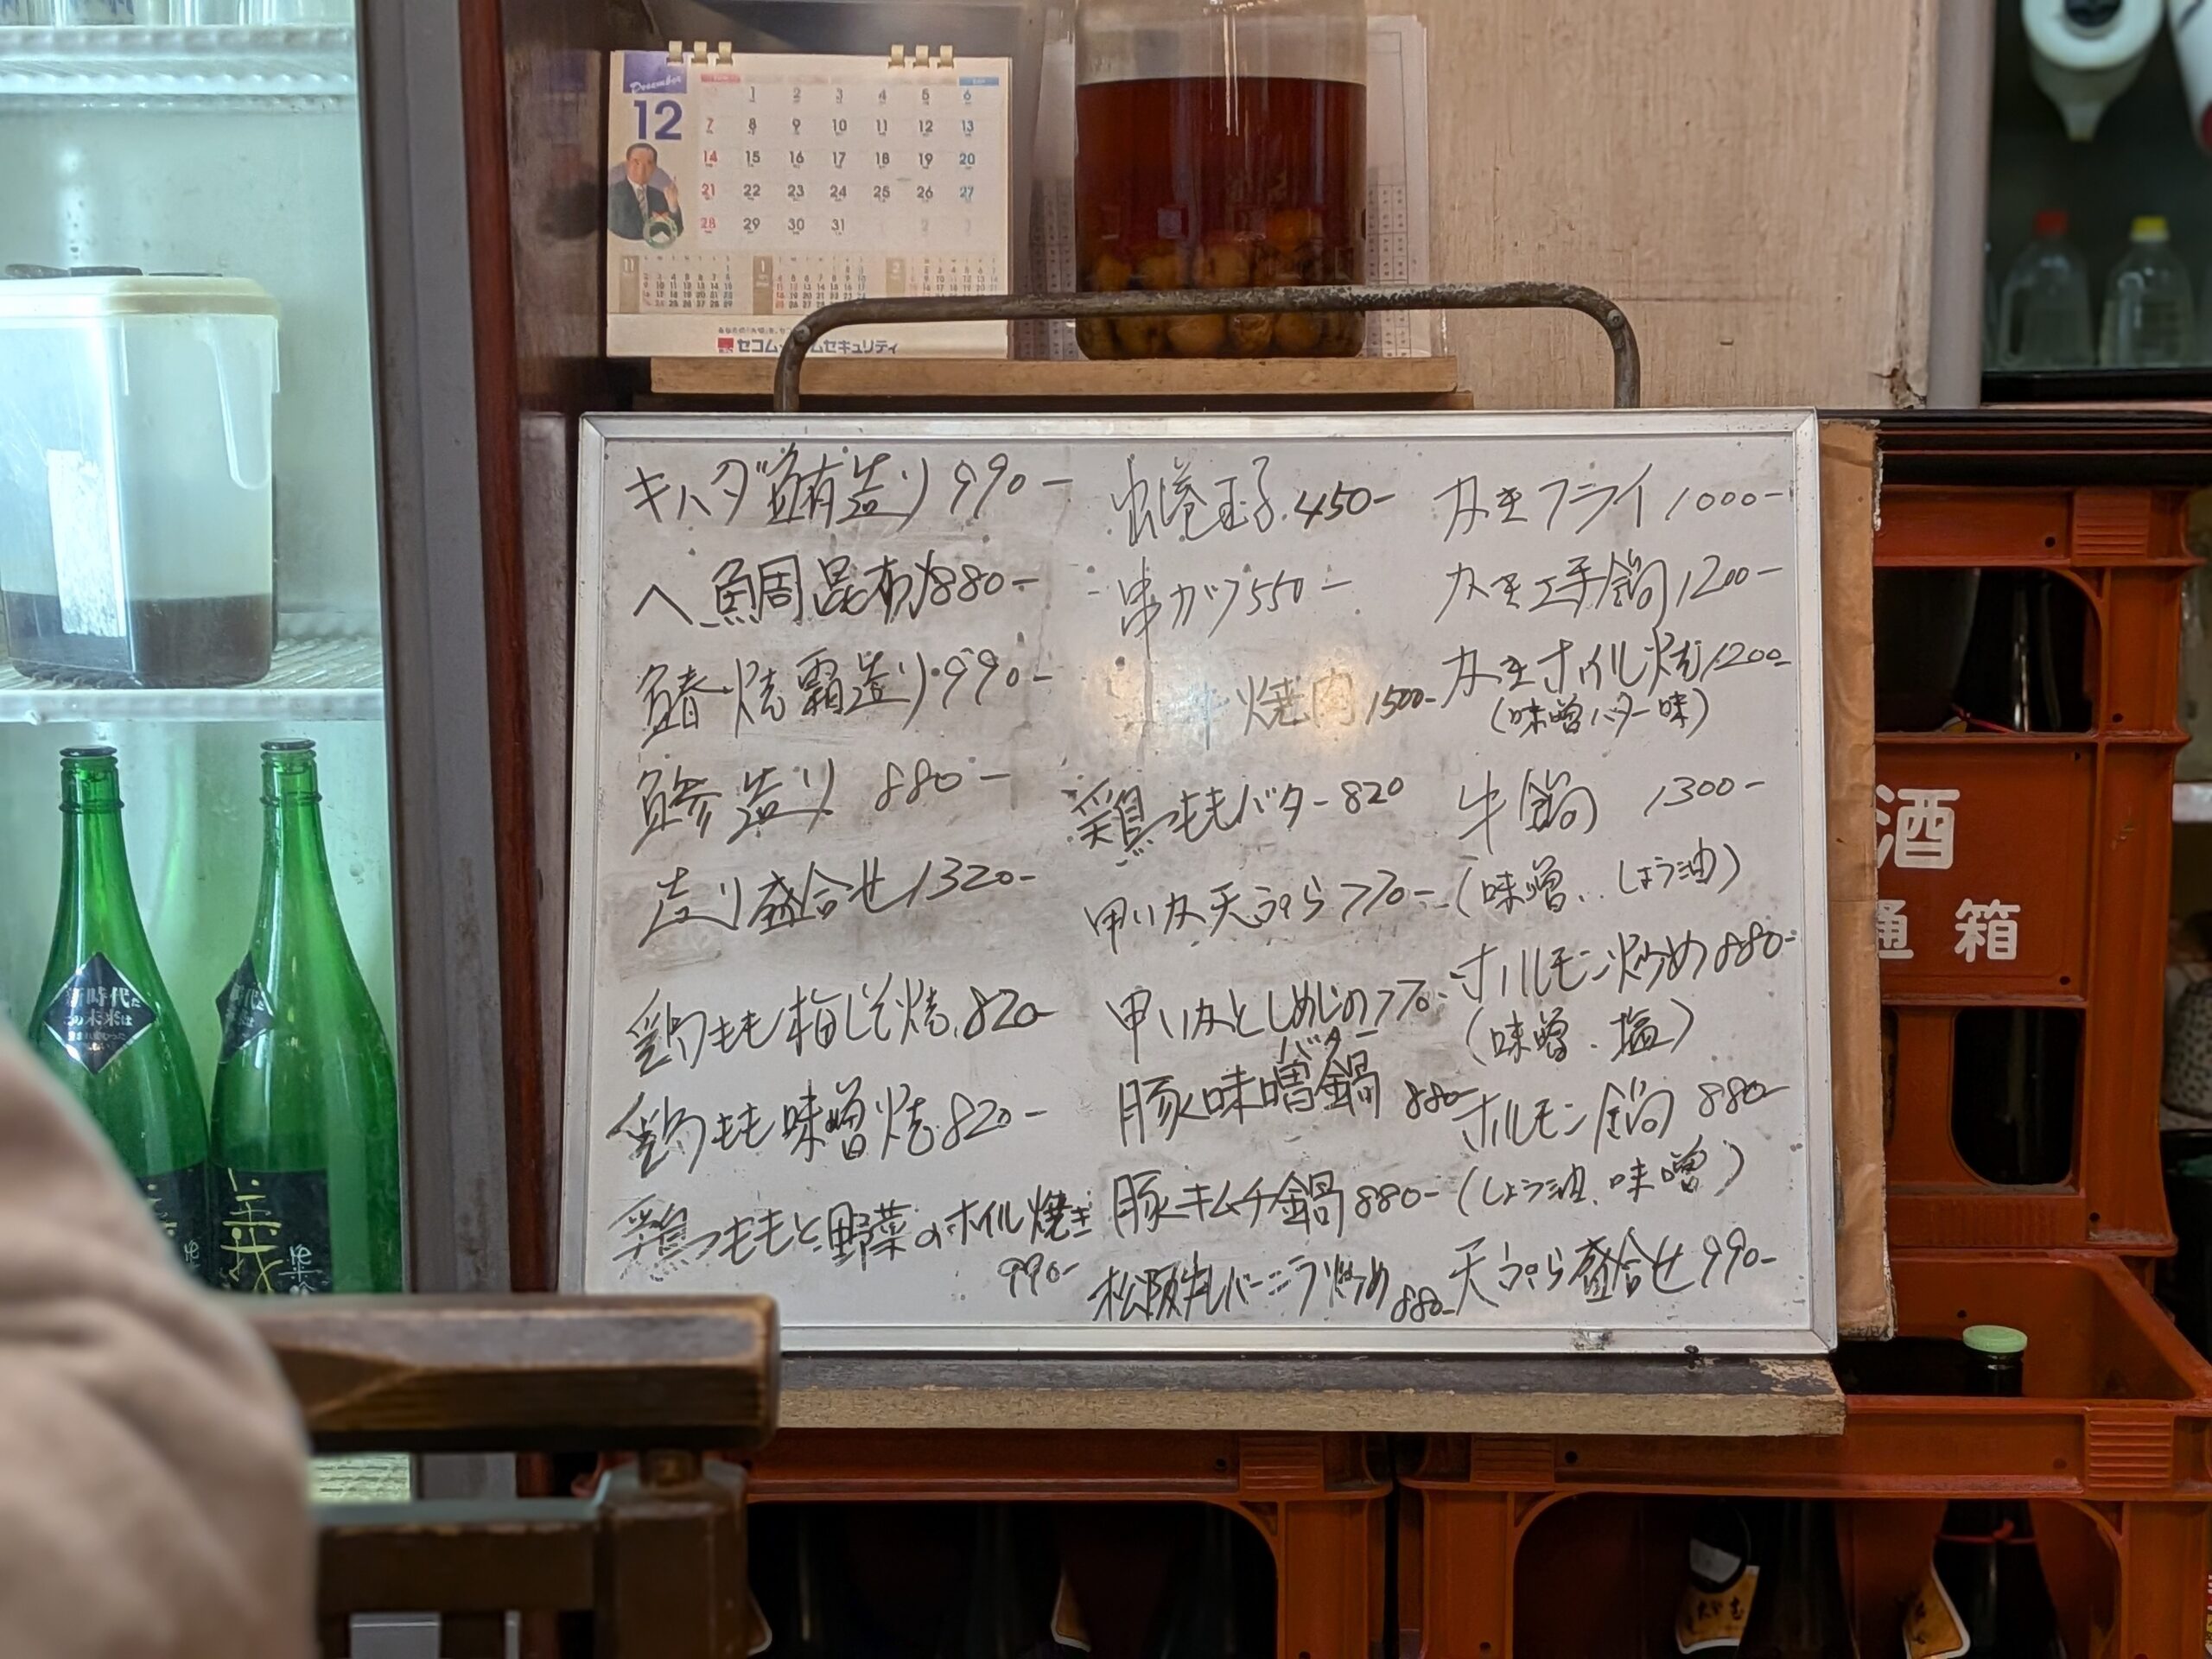 December
12
1 2 3 4 5 6
7 8 9 10 11 12 13
14 15 16 17 18 19 20
21 22 23 24 25 26 27
28 29 30 31
11 1 2
セコム ムセキュリティ
キハダ鮪造り 990-
〆鯛昆布 880-
鰆焼霜造り 990-
鰺造り 880-
造り盛合せ 1320-
鶏もも梅じそ焼 820-
鶏もも味噌焼 820-
鶏ももと野菜のホイル焼き
990-
出巻玉子 450-
串カツ 550-
牛焼肉 1500-
鶏ももバター 820
甲いか天ぷら 770-
甲いかとしめじの 770-
バター
豚味噌鍋 880-
豚キムチ鍋 880-
松阪牛レバーニラ炒め 880-
カキフライ 1000-
カキ土手鍋 1200-
カキホイル焼 1200-
(味噌バター味)
牛鍋 1300-
(味噌、しょう油)
ホルモン炒め 880-
(味噌、塩)
ホルモン鍋 880-
(しょう油、味噌)
天ぷら盛合せ 990-
酒
通箱
新時代
の未来は